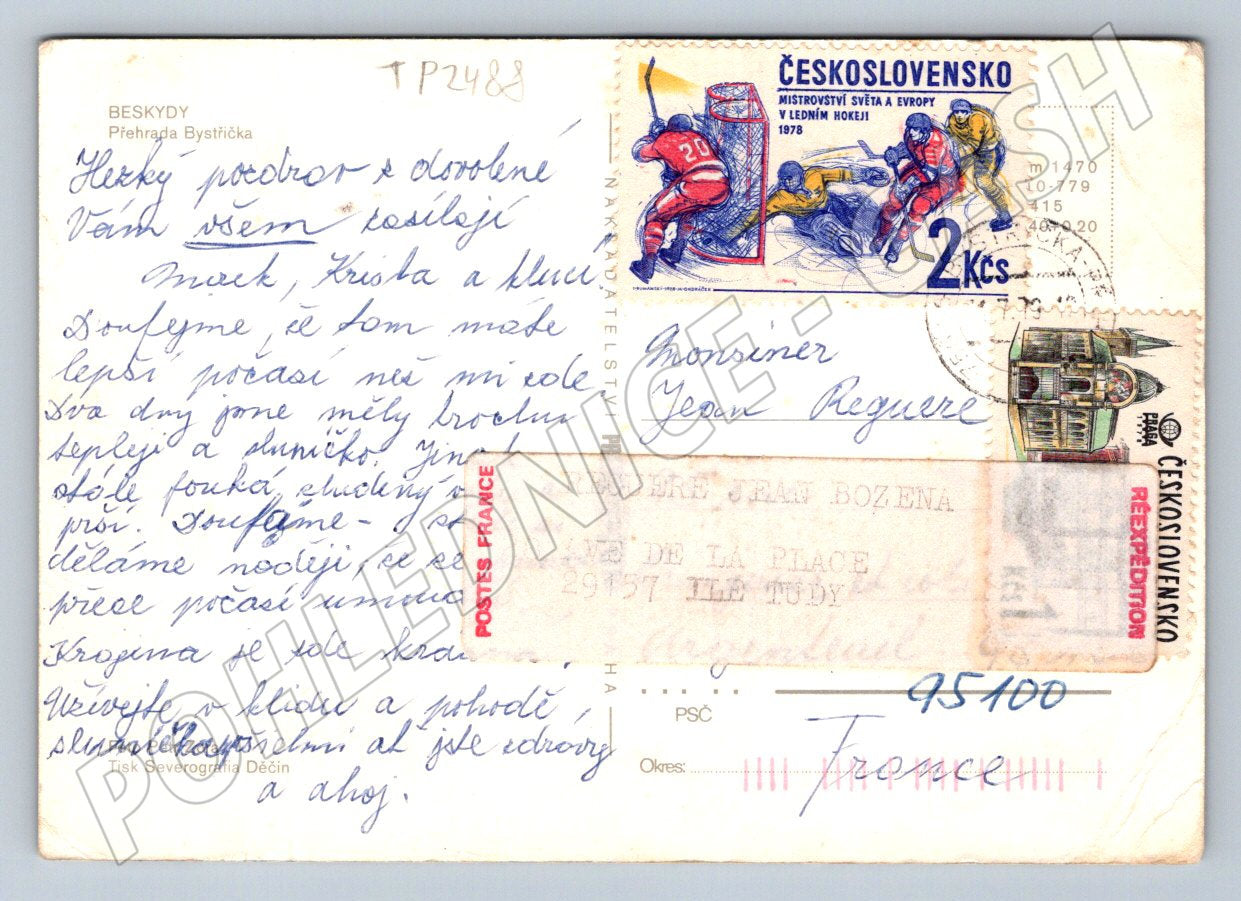 TP2488
BESKYDY
Přehrada Bystřička
Hezký pozdrav z dovolené
Vám všem zasílají
a kluci.
Doufejme, že tam máte
lepší počasí než mi zde.
Dva dny jsme měly trochu
tepleji a sluníčko.
stále fouká studený
prší. Doufejme -
děláme naději, že se
přece počasí
Krajina je zde
Užívejte v klidu a pohodě,
sluníčka, všichni ať jste zdrávy
a ahoj.
Tisk Severografia Děčín
NAKLADATELSTVÍ
HA
ČESKOSLOVENSKO
MISTROVSTVÍ SVĚTA A EVROPY
V LEDNÍM HOKEJI
1978
20
2 Kčs
m 1470
10-779
415
40 0,20
Monsiner
Jean Reguere
PRAGA
ČESKOSLOVENSKO
Kčs 1
POSTES FRANCE
JEAN BOZENA
AVE DE LA PLACE
ILE TUDY
RÉEXPÉDITION
95100
PSČ
France
Okres:
POHLEDNICE - CASH